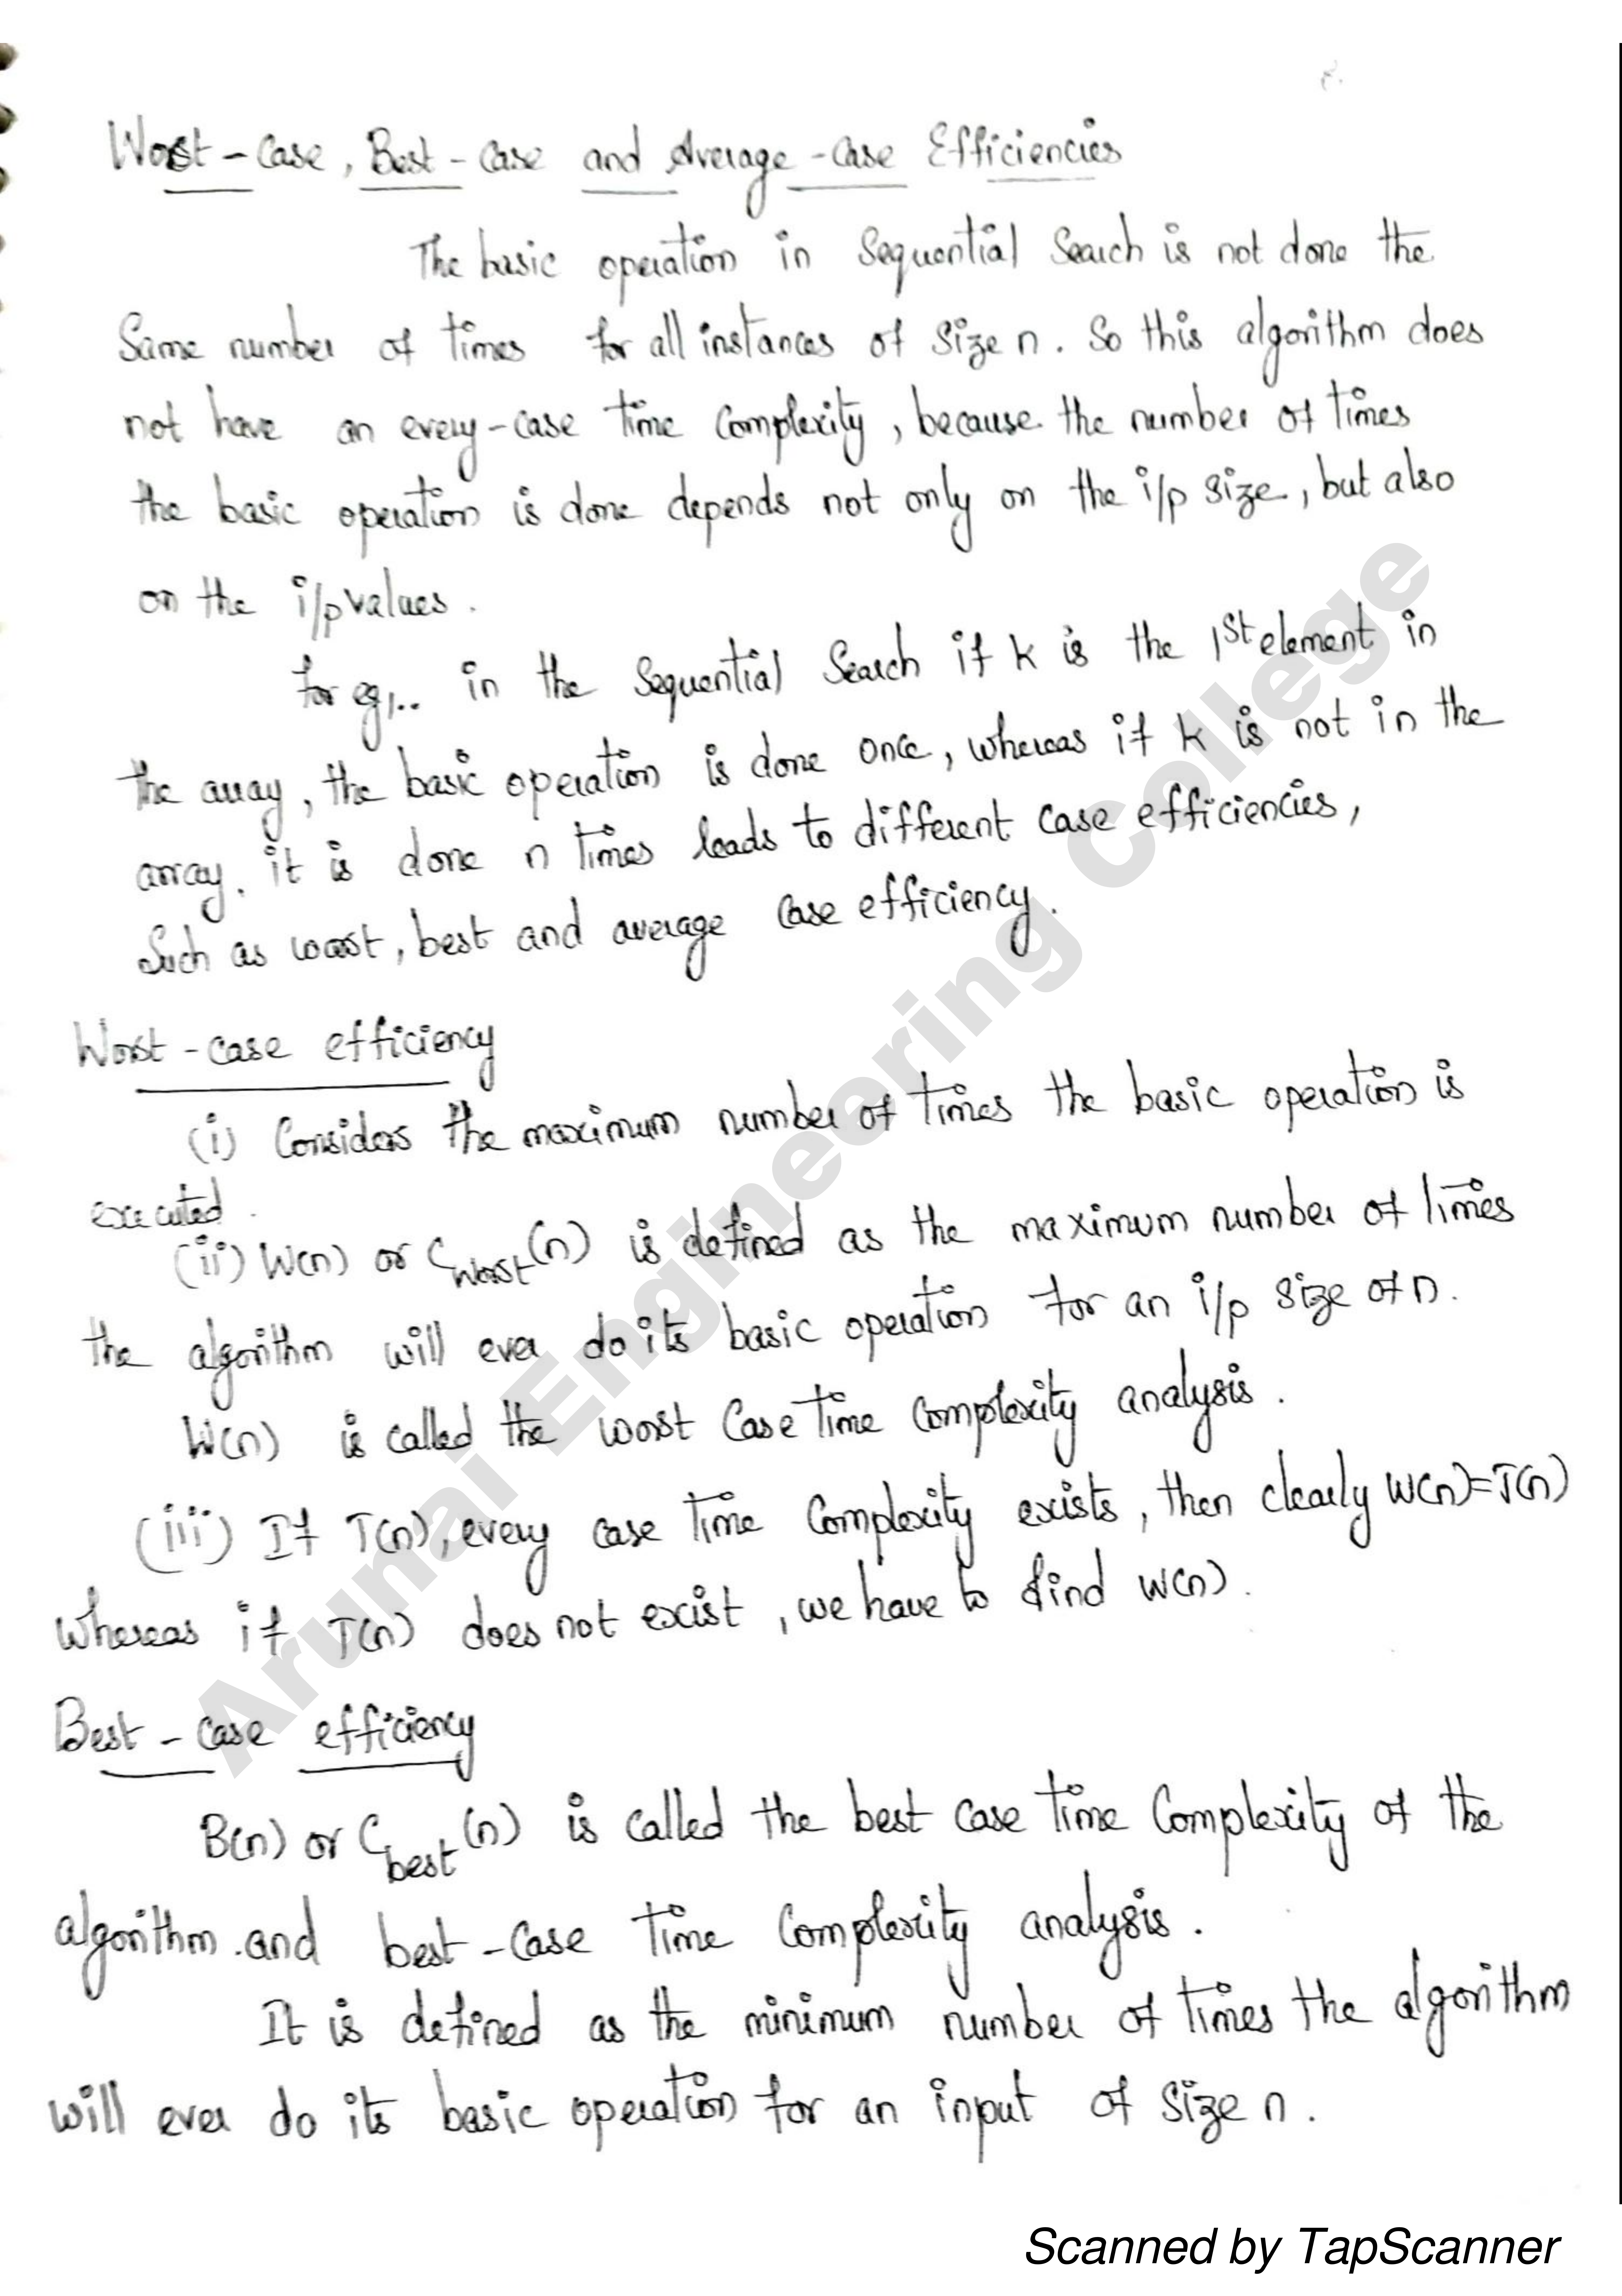 Worst-Case, Best-Case and Average-Case Efficiencies
The basic operation in Sequential Search is not done the
Same number of times for all instances of size n. So this algorithm does
not have an every-case time complexity, because the number of times
the basic operation is done depends not only on the i/p size, but also
on the i/p values.
for eg,.. in the Sequential Search if k is the 1st element in
the array, the basic operation is done once, whereas if k is not in the
array. it is done n times leads to different case efficiencies,
Such as worst, best and average case efficiency.
Worst-case efficiency
(i) Considers the maximum number of times the basic operation is
executed.
(ii) W(n) or Cworst(n) is defined as the maximum number of times
the algorithm will ever do its basic operation for an i/p size of n.
W(n) is called the worst case time complexity analysis.
(iii) If T(n), every case time complexity exists, then clearly W(n)=T(n)
whereas if T(n) does not exist, we have to find W(n).
Best-case efficiency
B(n) or Cbest(n) is called the best case time complexity of the
algorithm and best-case time complexity analysis.
It is defined as the minimum number of times the algorithm
will ever do its basic operation for an input of size n.
Arunai Engineering College
Scanned by TapScanner